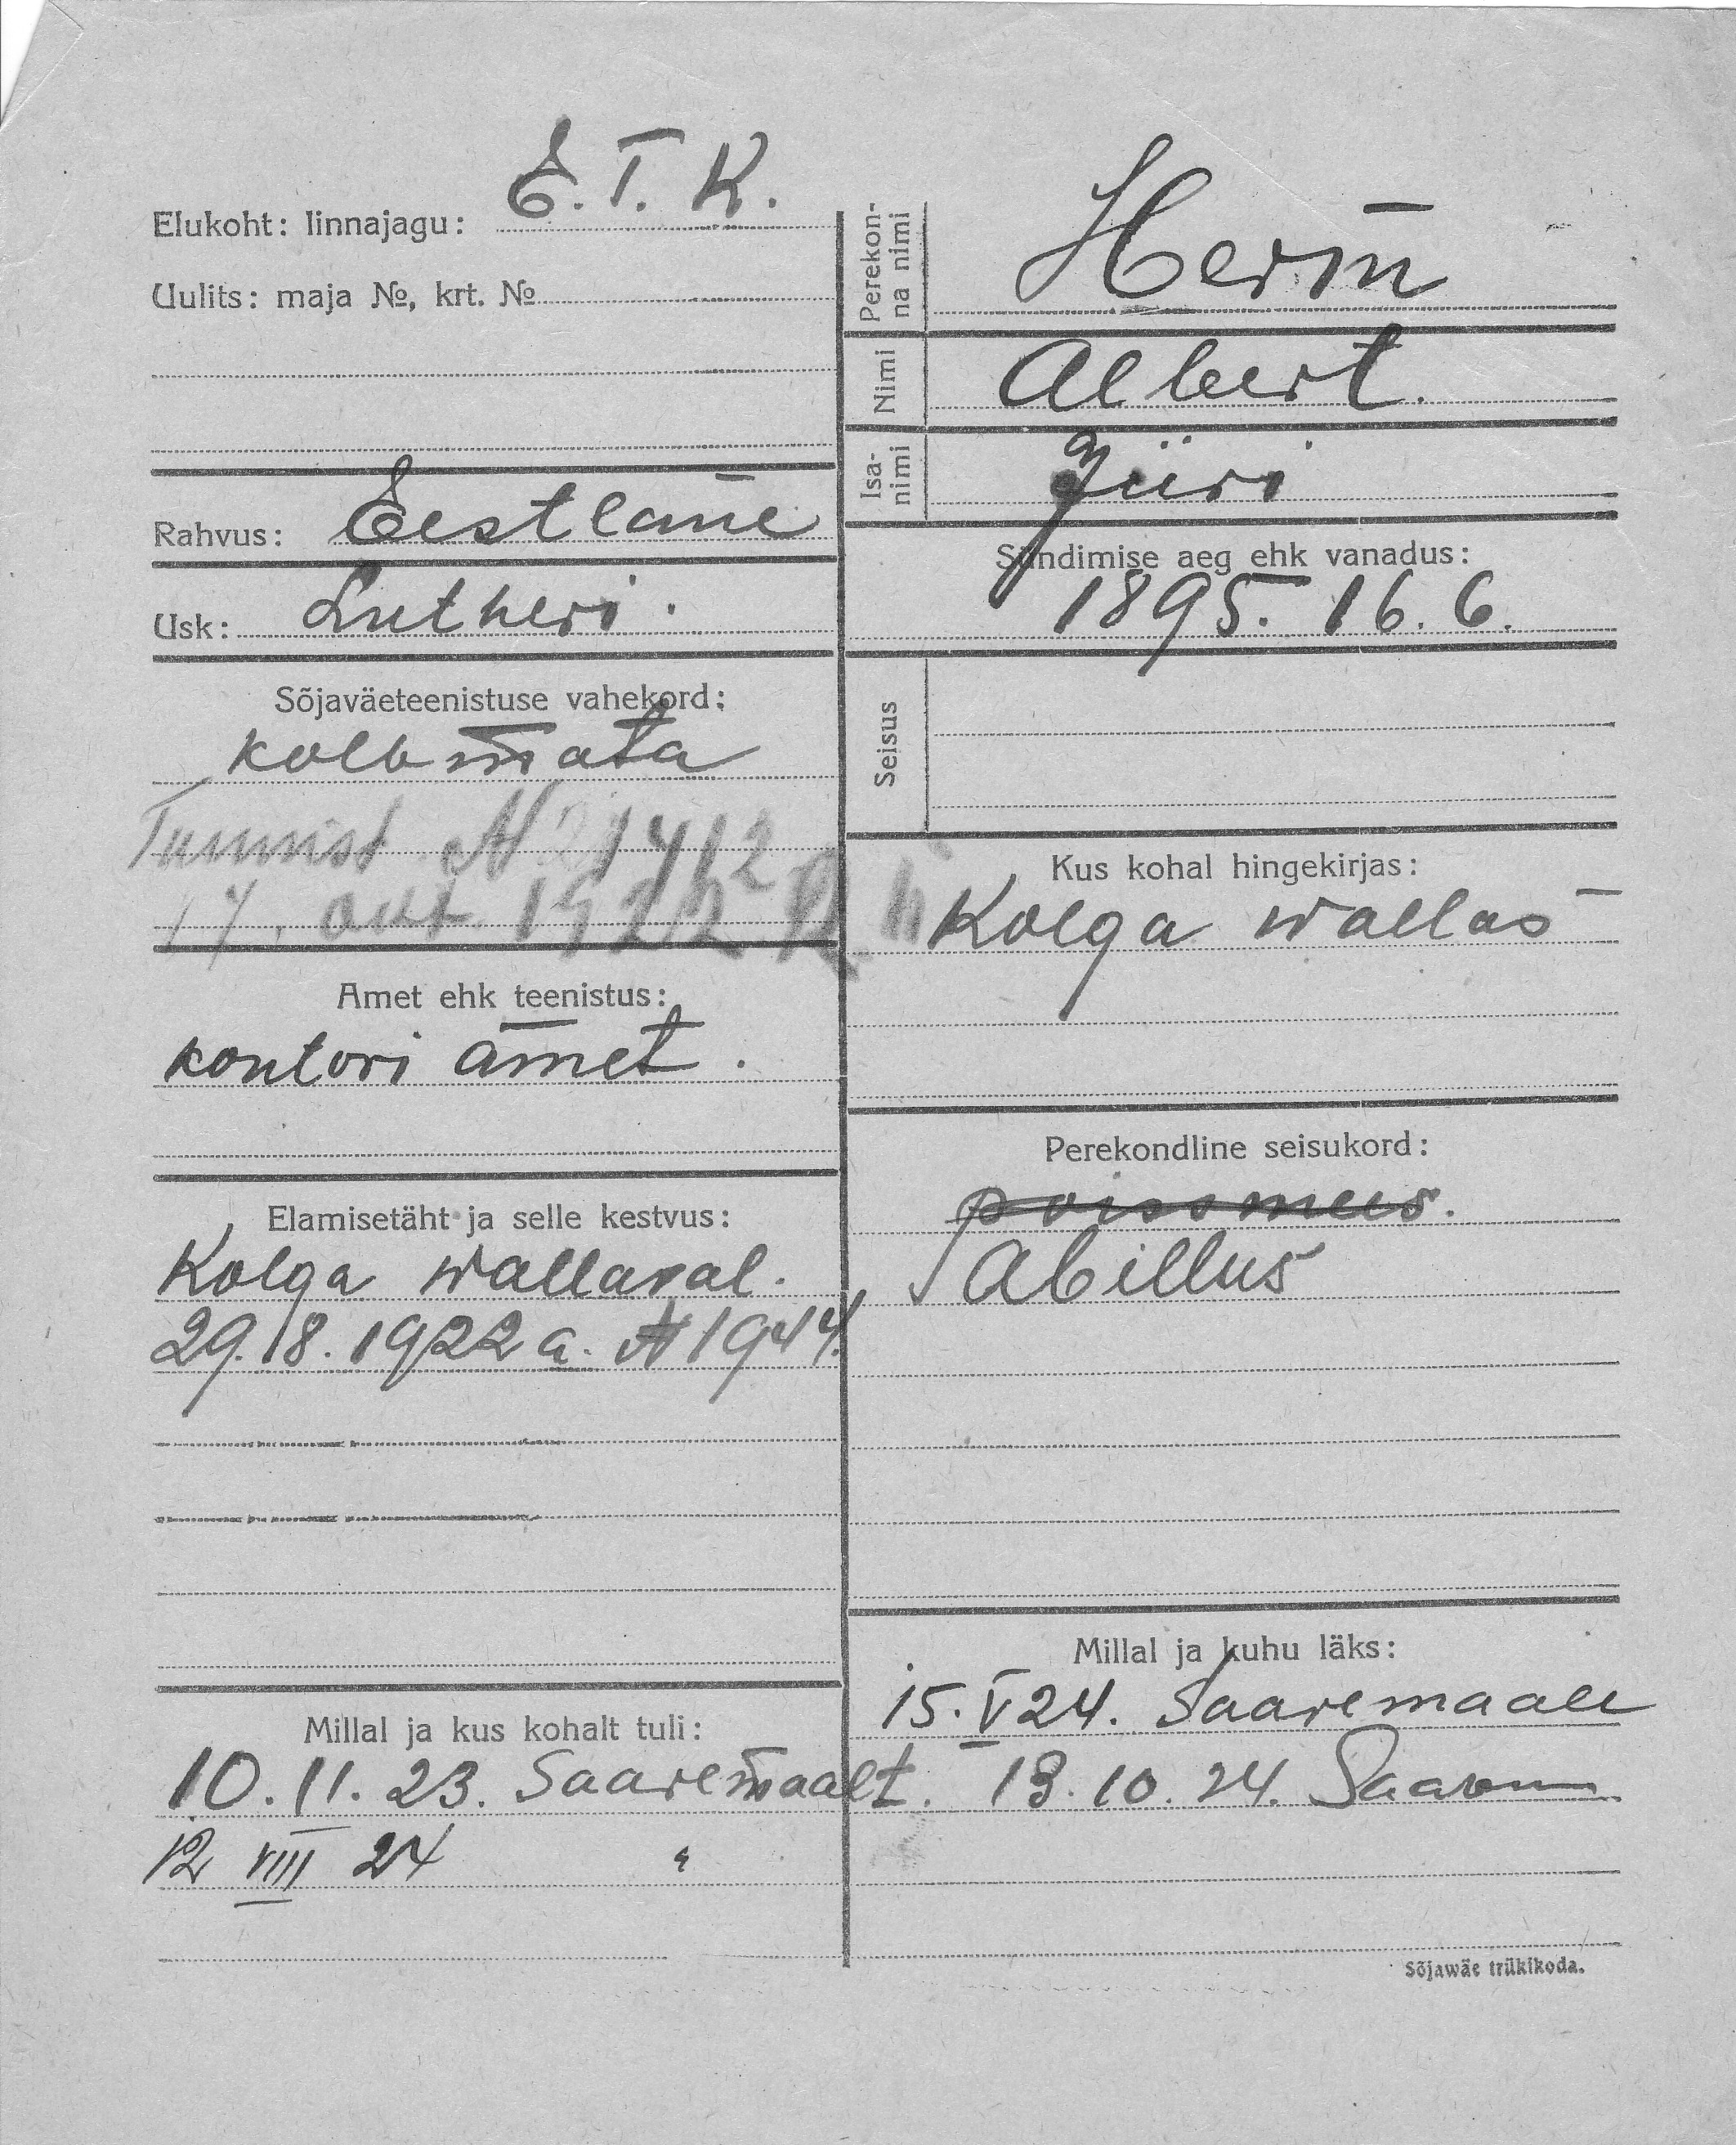 Elukoht: linnajagu: E. T. K.
Uulits: maja №, krt. №
Rahvus: Eestlane
Usk: Lutheri.
Sõjaväeteenistuse vahekord:
kolbmata
Tunnist № 1412
17. okt. 1922
Amet ehk teenistus:
kontori amet.
Elamisetäht ja selle kestvus:
Kolga wallaval.
29. 8. 1922 a. № 1944.
Millal ja kus kohalt tuli:
10. 11. 23. Saaremaalt.
12 VIII 24 "
Perekonna nimi
Herm
Nimi
Albert.
Isa-
nimi
Jüri
Sündimise aeg ehk vanadus:
1895. 16. 6.
Seisus
Kus kohal hingekirjas:
Kolga wallas
Perekondline seisukord:
poissmees.
Abillus
Millal ja kuhu läks:
15. V 24. Saaremaale
13. 10. 24. Saarem
Sõjawäe trükikoda.